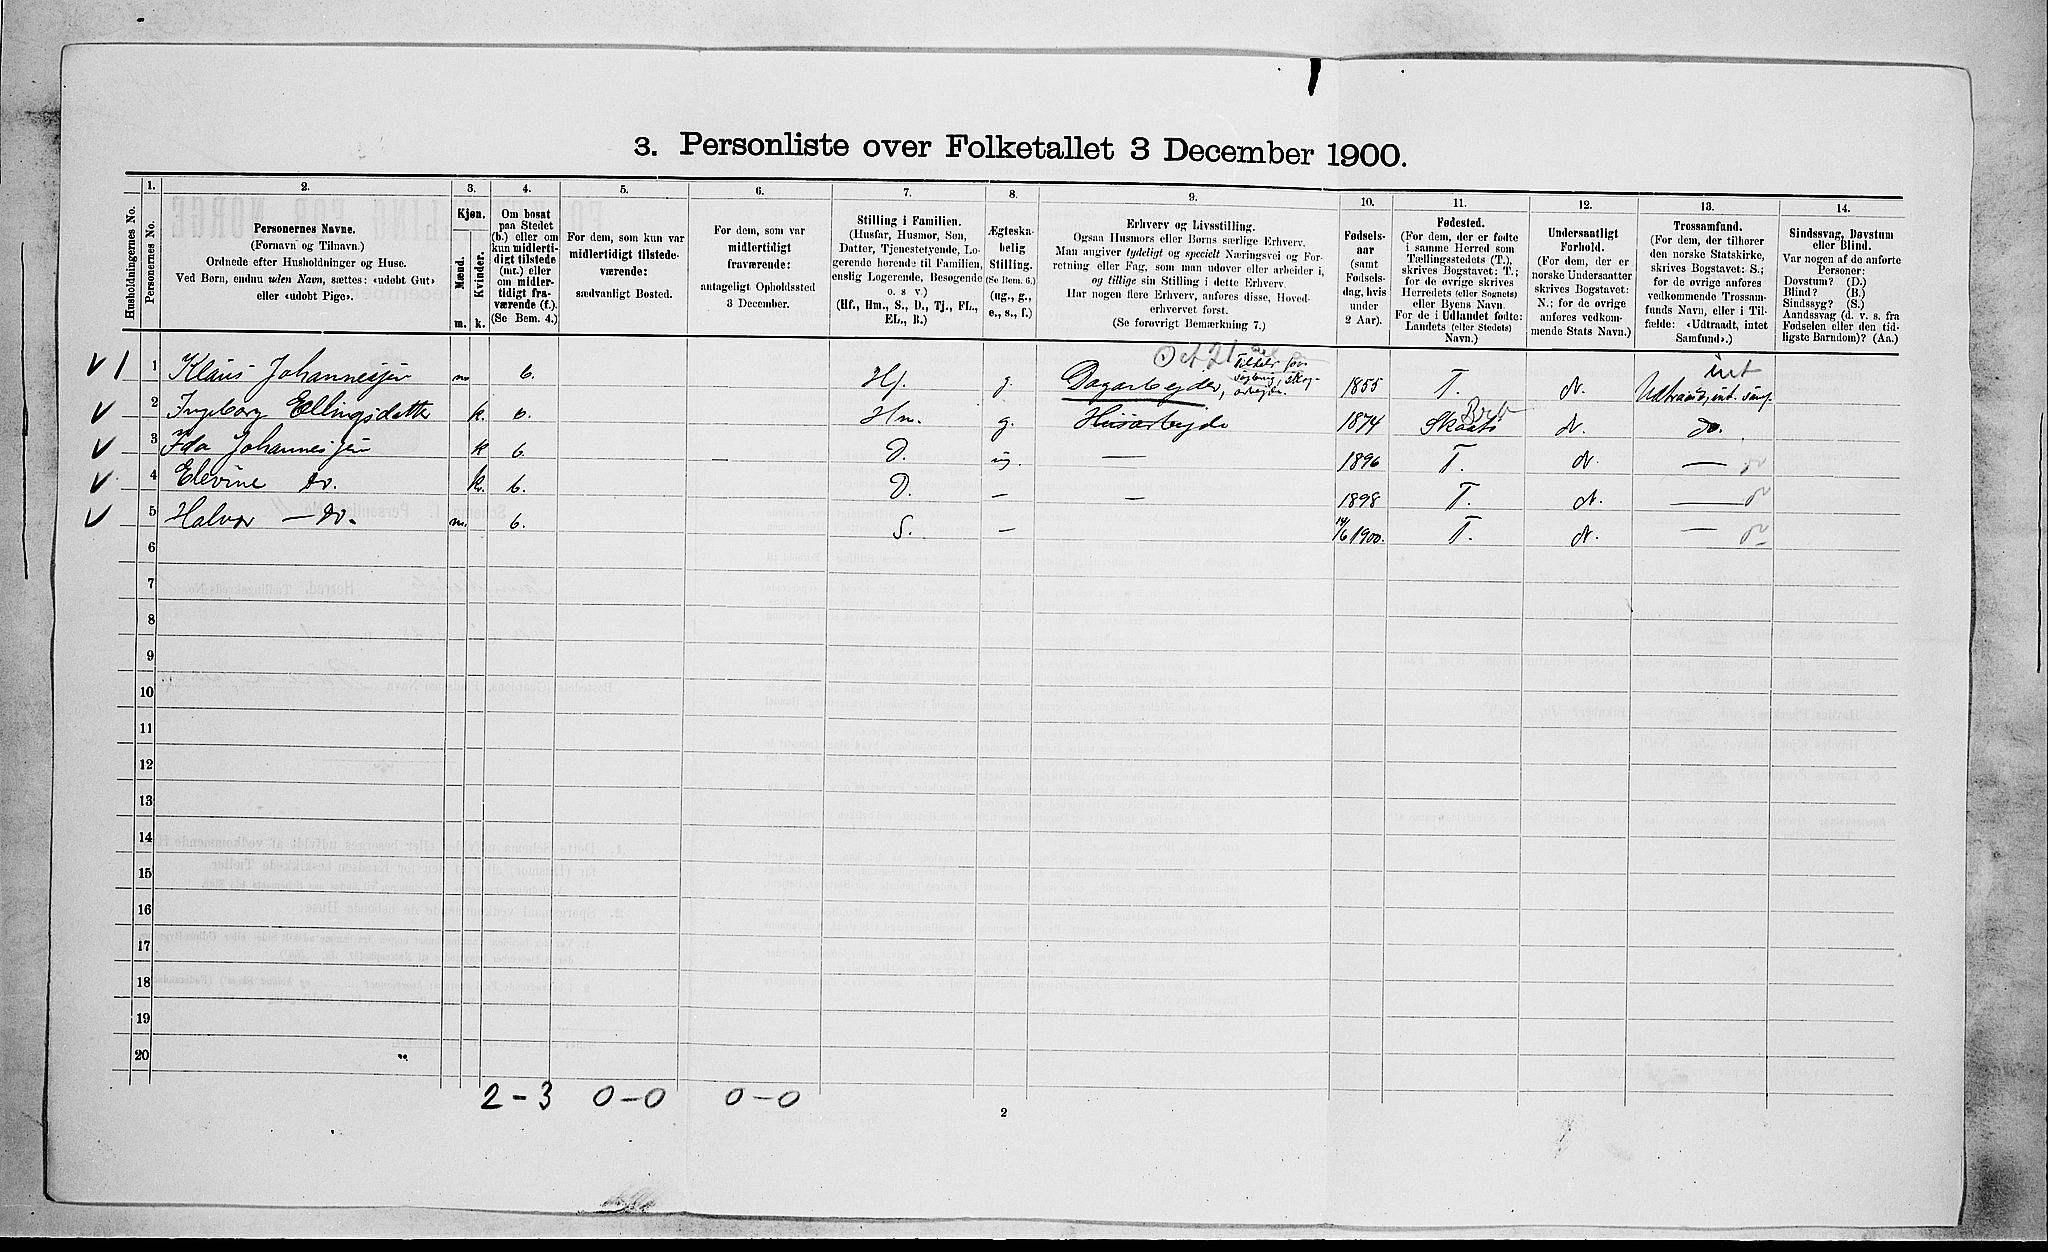 3. Personliste over Folketallet 3 December 1900.
Husholdningernes No.
1.
Personernes No.
2.
Personernes Navne.
(Fornavn og Tilnavn.)
Ordnede efter Husholdninger og Huse.
Ved Børn, endnu uden Navn, sættes: «udøbt Gut»
eller «udøbt Pige».
3.
Kjøn.
Mænd.
Kvinder.
m. k.
4.
Om bosat
paa Stedet
(b.) eller om
kun midlerti-
digt tilstede
(mt.) eller
om midler-
tidigt fra-
værende (f.).
(Se Bem. 4.)
5.
For dem, som kun var
midlertidigt tilstede-
værende:
sædvanligt Bosted.
6.
For dem, som var
midlertidigt
fraværende:
antageligt Opholdssted
3 December.
7.
Stilling i Familien.
(Husfar, Husmor, Søn,
Datter, Tjenestetyende, Lo-
gerende hørende til Familien,
enslig Logerende, Besøgende
o. s v.)
(Hf., Hm., S., D., Tj., FL.,
EL., B.)
8.
Ægteska-
belig
Stilling.
(Se Bem. 6.)
(ug., g.,
e., s., f.)
9.
Erhverv og Livsstilling.
Ogsaa Husmors eller Børns særlige Erhverv.
Man angiver tydeligt og specielt Næringsvei og For-
retning eller Fag, som man udøver eller arbeider i,
og tillige sin Stilling i dette Erhverv.
Har nogen flere Erhverv, anføres disse, Hoved-
erhvervet først.
(Se forøvrigt Bemærkning 7.)
10.
Fødsels-
aar
(samt
Fødsels-
dag, hvis
under
2 Aar).
11.
Fødested.
(For dem, der er fødte
i samme Herred som
Tællingsstedets (T.),
skrives Bogstavet: T.;
for de øvrige skrives
Herredets (eller Sognets)
eller Byens Navn.
For de i Udlandet fødte:
Landets (eller Stedets)
Navn.)
12.
Undersaatligt
Forhold.
(For dem, der er
norske Undersaatter
skrives Bogstavet:
N.; for de øvrige
anføres vedkom-
mende Stats Navn.)
13.
Trossamfund.
(For dem, der tilhører
den norske Statskirke,
skrives Bogstavet: S.;
for de øvrige anføres
vedkommende Trossam-
funds Navn, eller i Til-
fælde: «Udtraadt, intet
Samfund».)
14.
Sindssvag, Døvstum
eller Blind.
Var nogen af de anførte
Personer:
Døvstum? (D.)
Blind? (B.)
Sindssyg? (S.)
Aandssvag (d. v. s. fra
Fødselen eller den tid-
ligste Barndom)? (Aa.)
1 1 Klaus Johannessen m b. Hf. g. Dagarbeyder, 1855 T. N.
2 Ingborg Ellingsdatter k. b. Hm. g. Husarbejde 1874 N. Do.
3 Ida Johannessen k b. — D. ug. — 1896 T. N. —
4 Elevine Do. k. b. D. — — 1898 T. N. —
5 Halvor — Do. m. b. S. — 14/6 1900. T. N. —
6
7
8
9
10
11
12
13
14
15
16
17
18
19
20
2-3 0-0 0-0
2